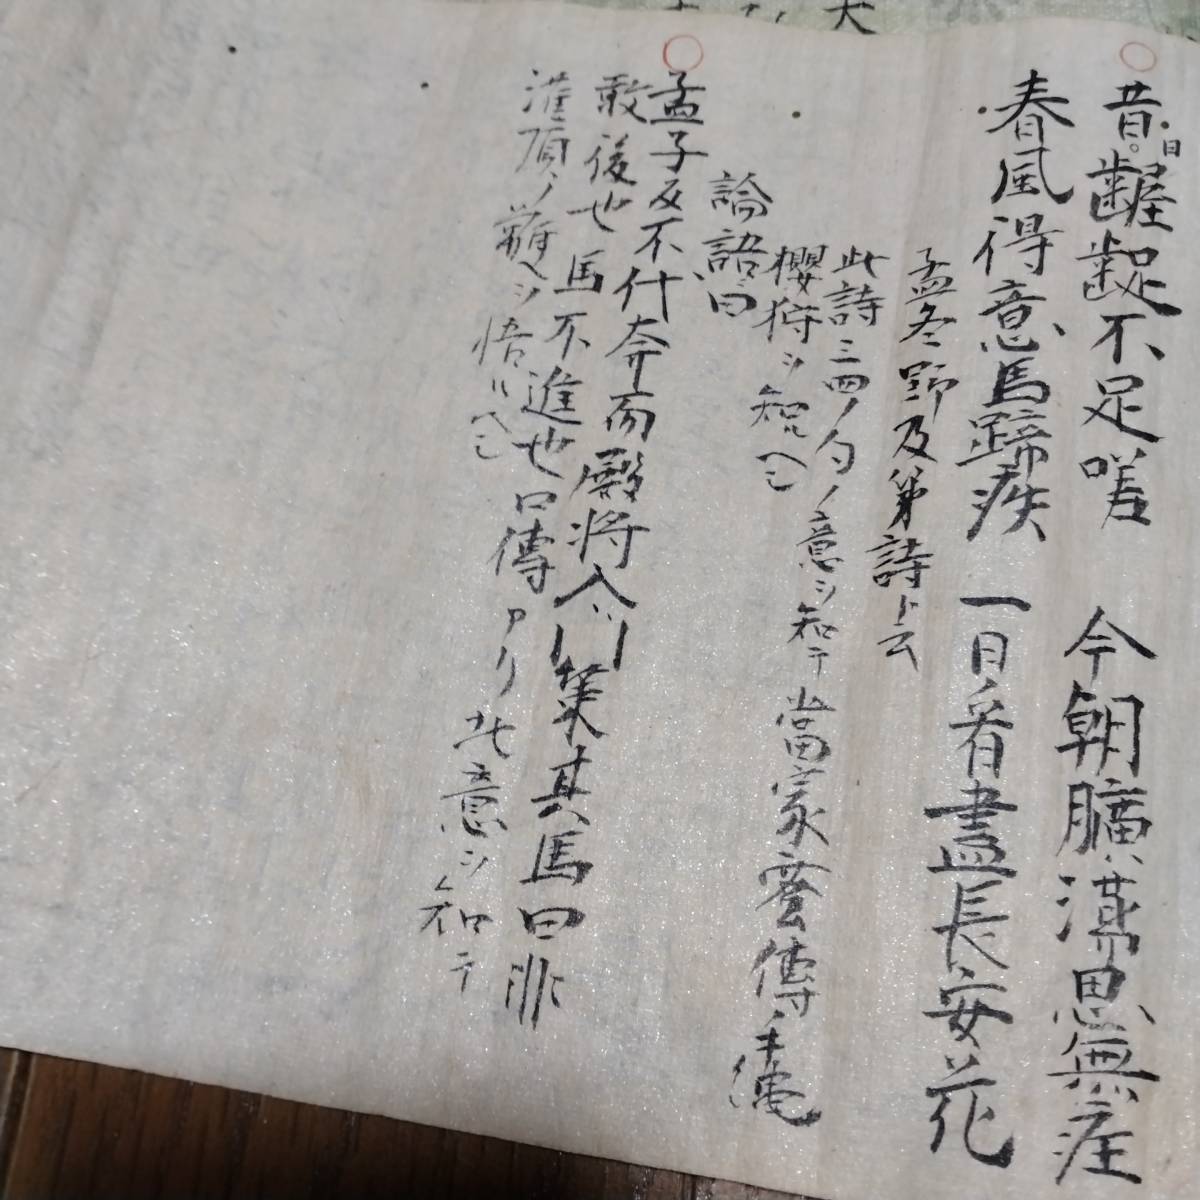 昔日齷齪不足嗟 今朝曠蕩思無涯
春風得意馬蹄疾 一日看盡長安花
孟冬野及第詩ト云
此詩三四ノ句ノ意ヲ知テ當家
櫻狩ヲ知ヘシ
論語曰
孟子反不伐奔而殿将入門策其馬曰非
敢後也馬不進也口傳アリ此意ヲ知テ
灌頂ノ
悟ルヘシ